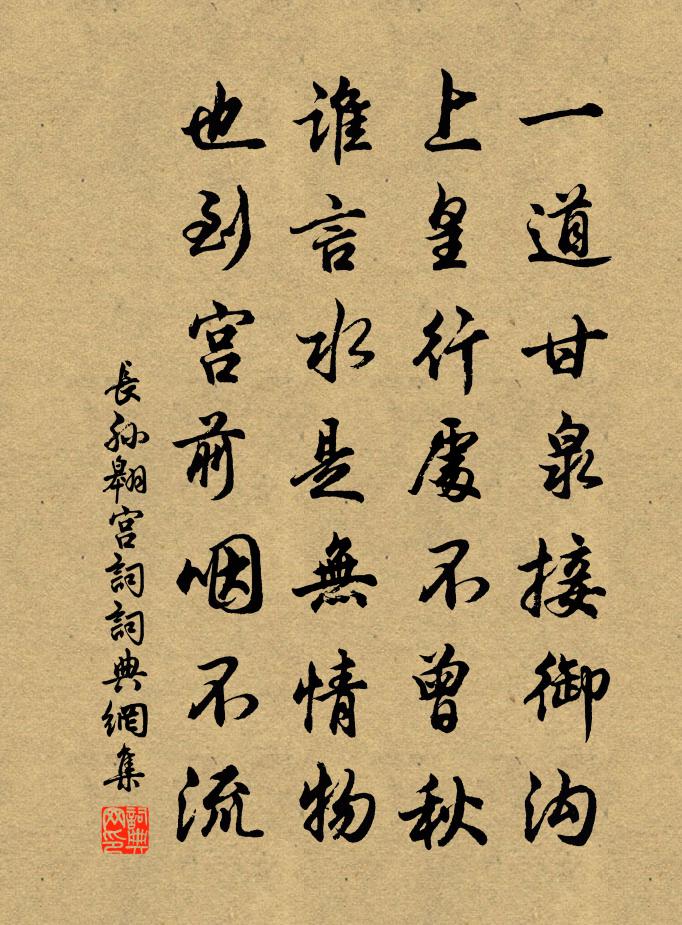 一道甘泉接御沟
上皇行處不曾秋
誰言水是無情物
也到宫前咽不流
長孙翱宫詞詞典網集
詞典网印